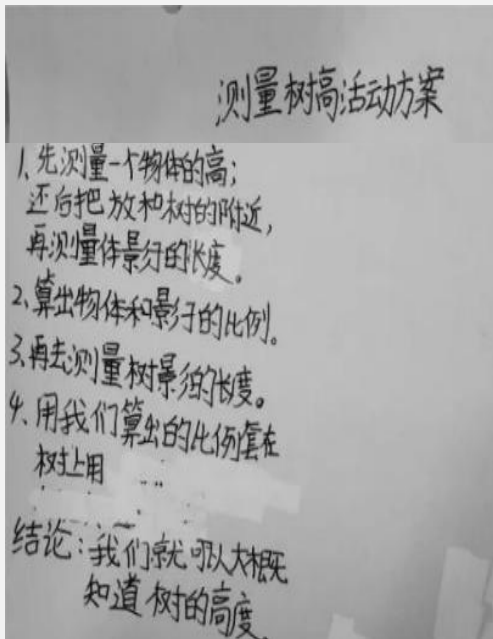 测量树高活动方案
1、先测量一个物体的高;
还后把放和树的附近,
再测量体景行的长度。
2、算出物体和影子的比例。
3、再去测量树景的长度。
4、用我们算出的比例套在
树上用
结论:我们就可以大概
知道树的高度。